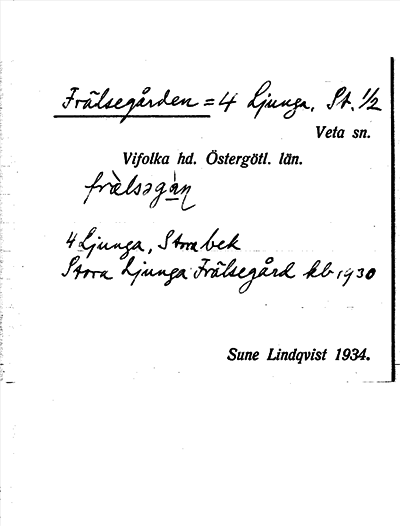 Frälsegården = 4 Ljunga, St. 1/2
Veta sn.
Vifolka hd. Östergötl. län.
frä̀lsəgá̱ṇ
4 Ljunga, Stora bek
Stora Ljunga Frälsegård kb 1930
Sune Lindqvist 1934.